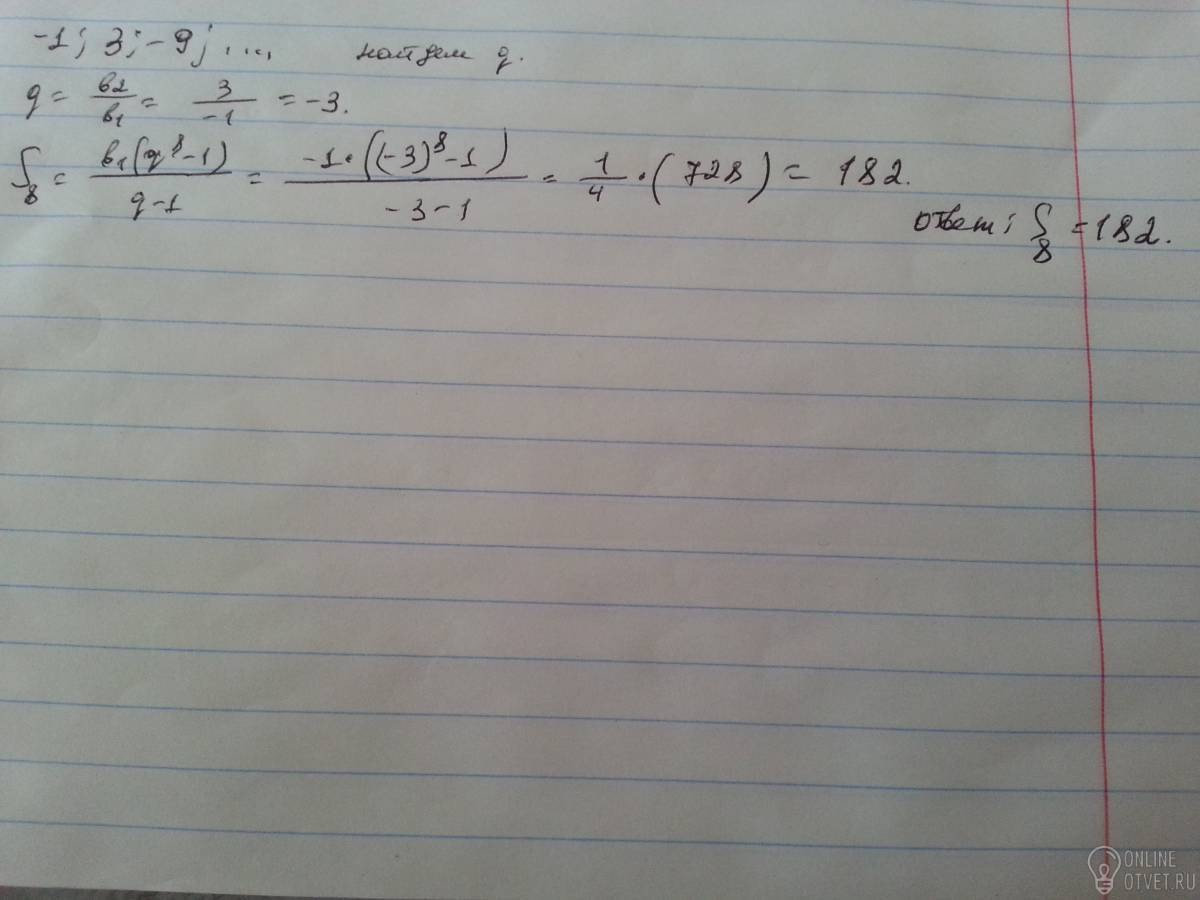 -1; 3; -9; ..., найдем q.
q = в2/в1 = 3/-1 = -3.
S8 = в1(q^8-1)/q-1 = -1·((-3)^8-1)/-3-1 = 1/4·(728) = 182.
ответ; S8 = 182.
ONLINE
OTVET.RU